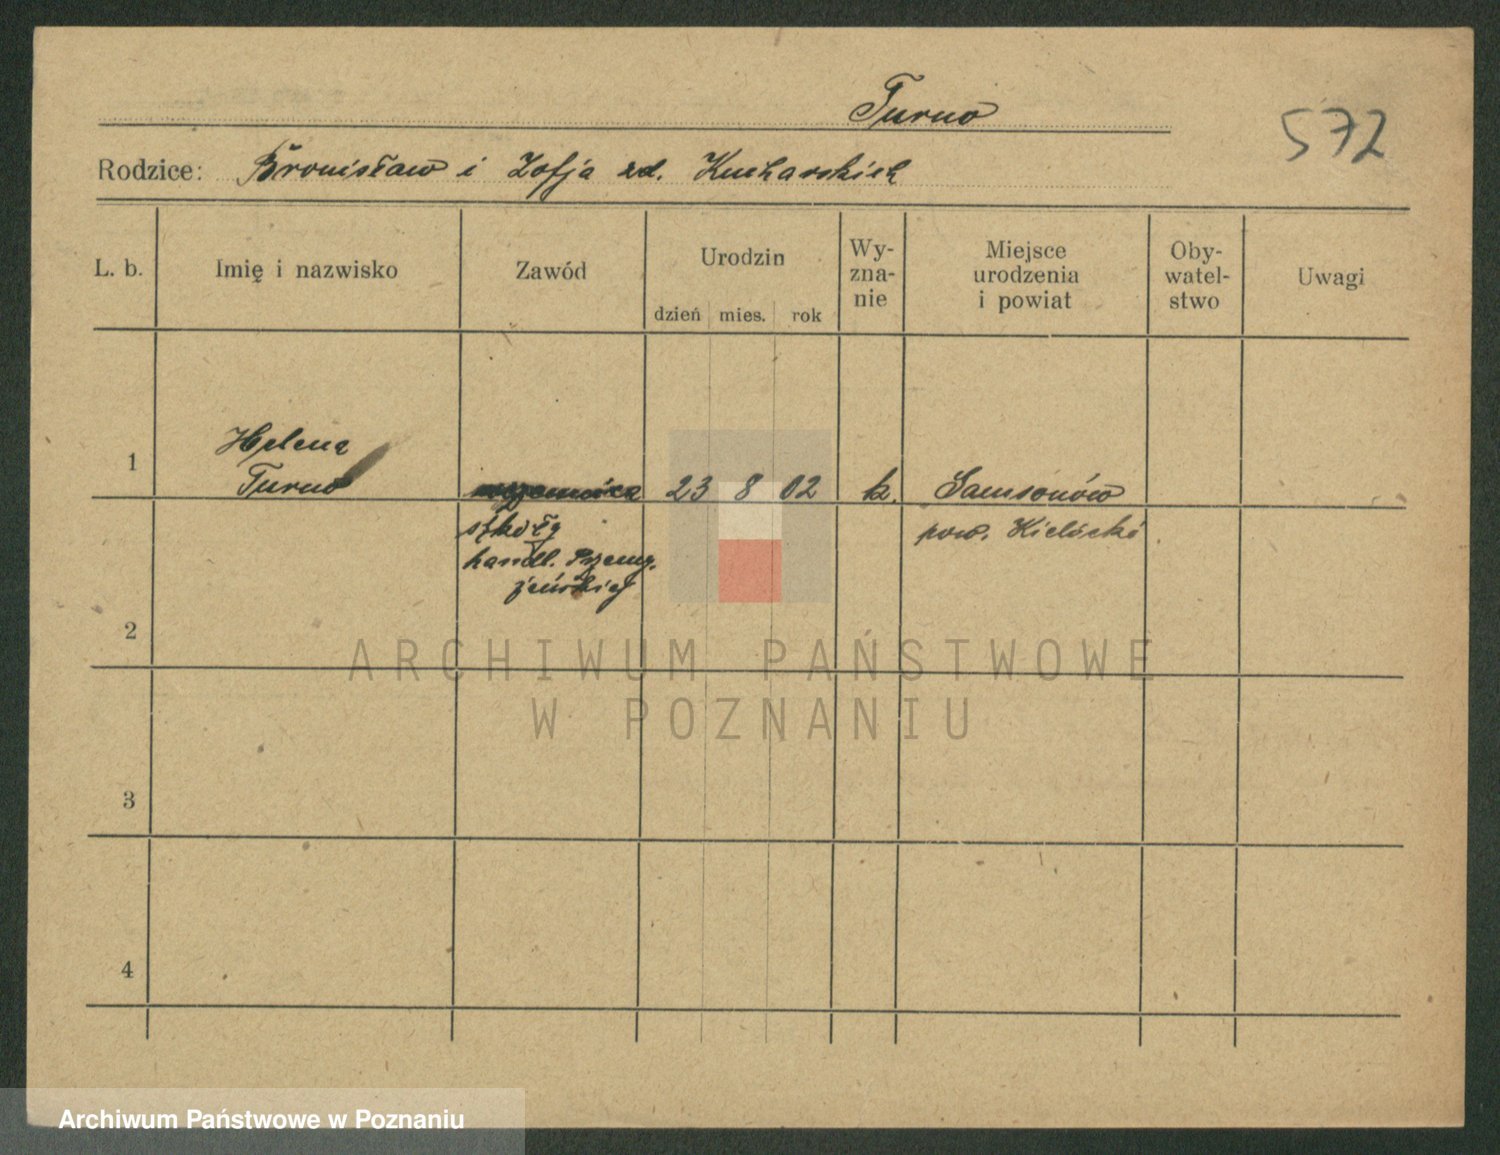 Turno
572
Rodzice: Bronisław i Zofja zd. Kucharskich
L. b. Imię i nazwisko Zawód Urodzin Wy-
zna-
nie Miejsce
urodzenia
i powiat Oby-
watel-
stwo Uwagi
dzień mies. rok
1 Helena
Turno 23 8 02 k. Samsonów
szkoły pow. Kielecki
handl. Przemy.
żeńskiej
2
3
4
ARCHIWUM PAŃSTWOWE
W POZNANIU
Archiwum Państwowe w Poznaniu